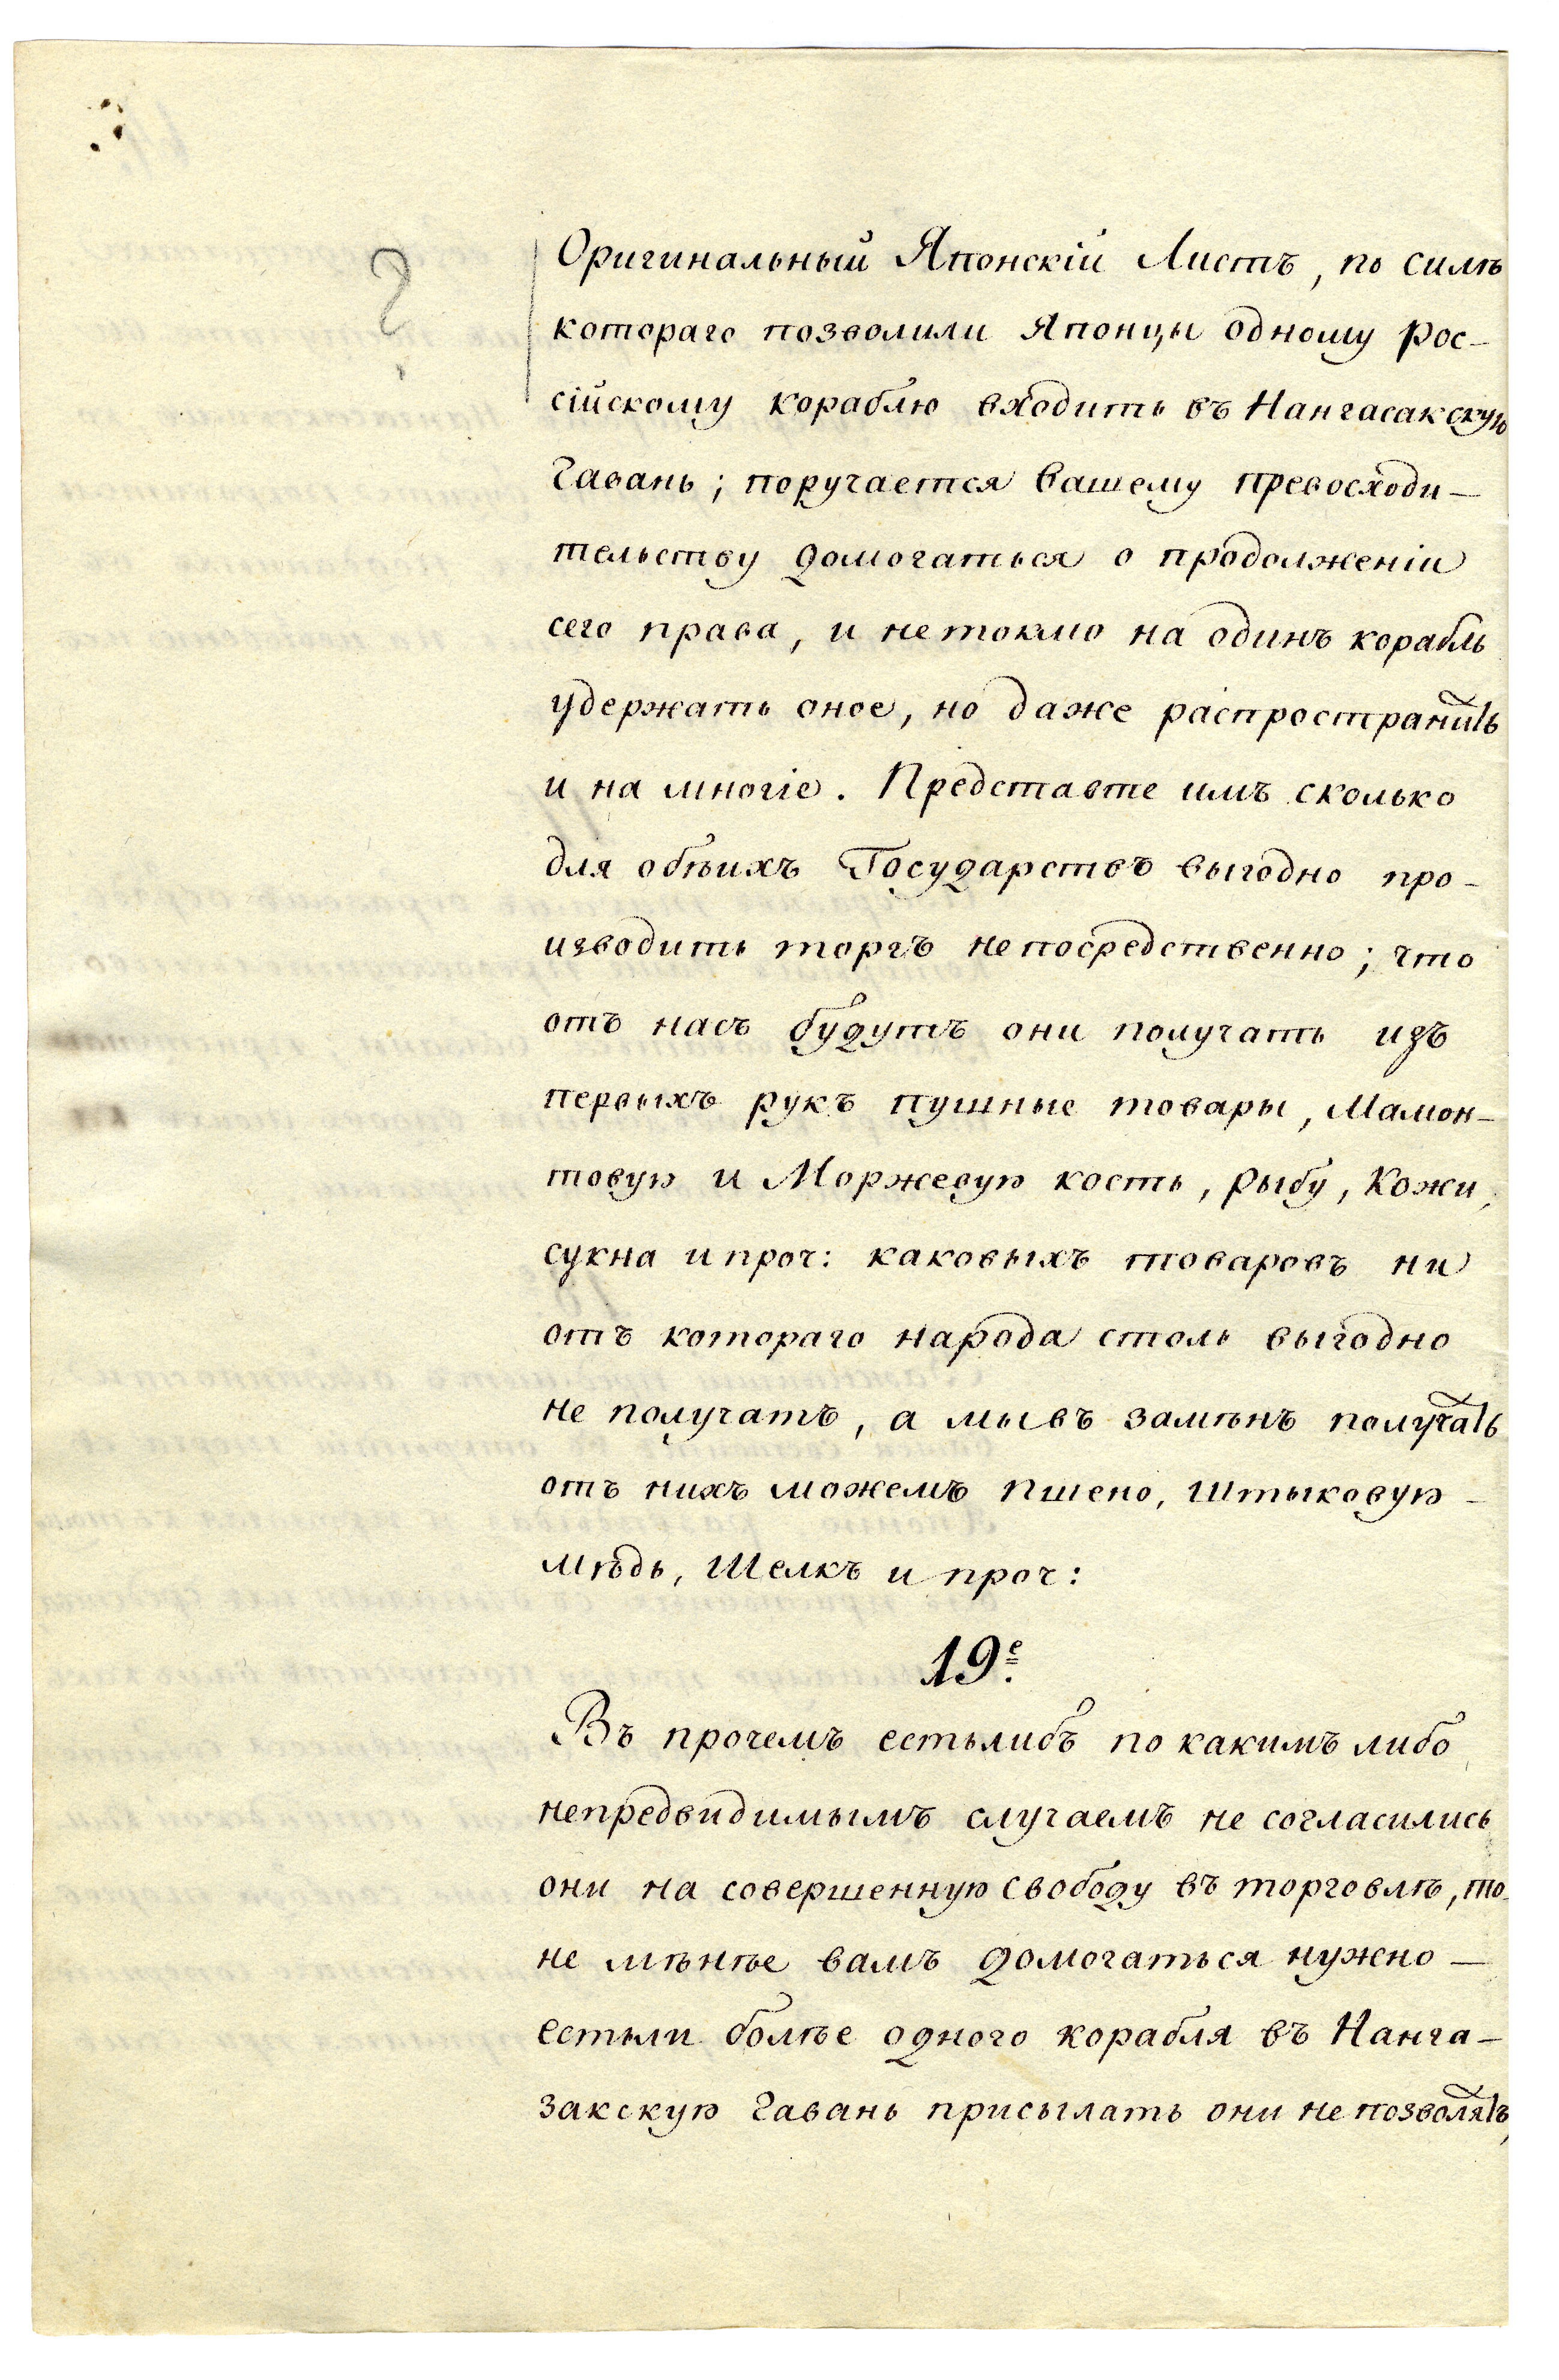 ?
Оригинальный Японскій Листъ, по силѣ
котораго позволили Японцы одному Рос-
сійскому кораблю входить въ Нангасакскую
Гавань; поручается Вашему Превосходи-
тельству домогаться о продолженіи
сего права, и нетокмо на одинъ корабль
удержать оное, но даже распространить
и на многіе. Представте имъ сколько
для обѣихъ Государствъ выгодно про-
изводить торгъ непосредственно; что
отъ насъ будутъ они получать изъ
первыхъ рукъ пушные товары, Мамон-
товую и Моржевую кость, рыбу, Кожи,
сукна и проч: каковыхъ товаровъ ни
отъ котораго народа столь выгодно
не получатъ, а мы въ замѣнъ получать
отъ нихъ можемъ пшено, штыковую -
мѣдь, Шелкъ и проч:
19е.
Въ прочемъ естьлибъ по какимъ либо
непредвидимымъ случаемъ не согласились
они на совершенную свободу въ торговлѣ, то
не мѣнѣе вамъ домогаться нужно -
естьли болѣе одного корабля въ Нанга-
закскую Гавань присылать они не позволятъ,